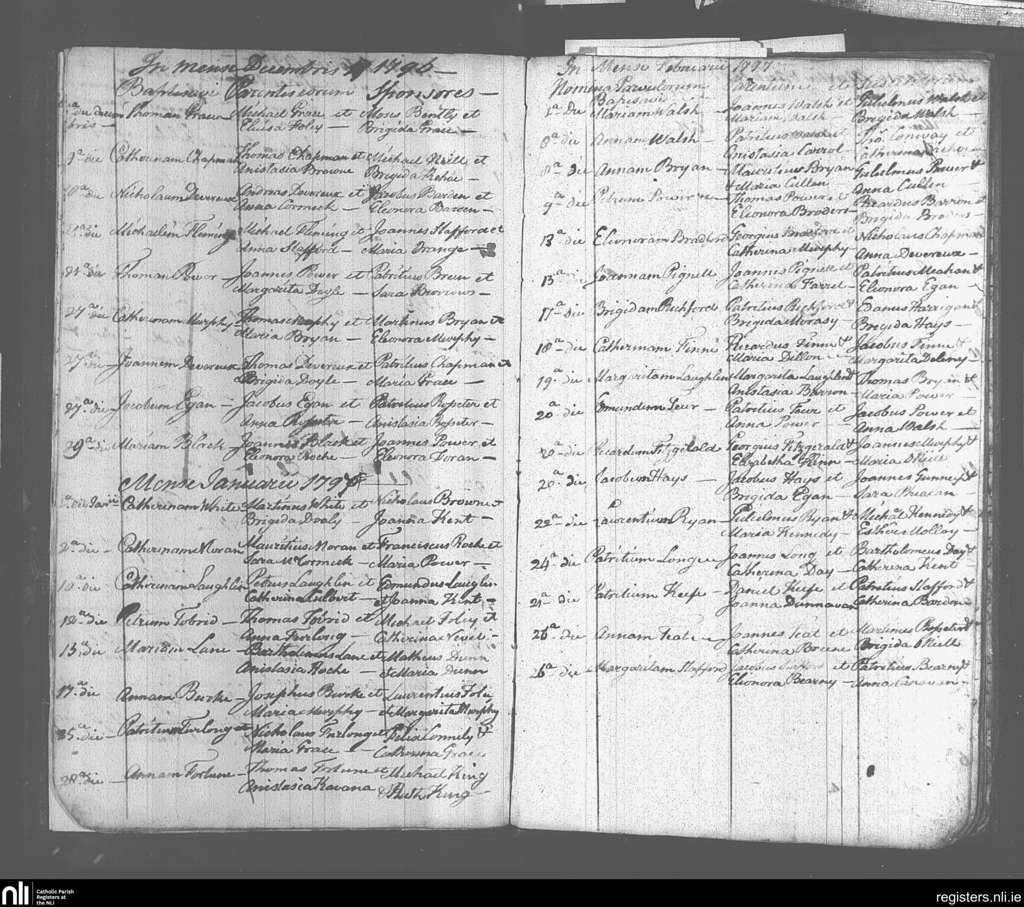 In Mense Decembris 1796 —
Baptisavi Parentes eorum Sponsores —
Thomam Grace Michael Grace et Moses Bently et
Eluisa Foley — Brigida Grace —
9a die Catherinam Chapman Thomas Chapman et Michael Neill et
Anistasia Browne Brigida Kehoe —
die Nicholaum Devereux Andreas Devereux et Jacobus Barden et
Anna Cormick — Eleonora Barden —
die Michaelem Fleming Michael Fleming et Joannes Stafford et
Anna Stafford — Maria Orange —
21a die Thomam Power Joannes Power et Patritius Breen et
Margarita Doyle — Sara Burrows —
27a die Catherinam Murphy Thomas Murphy et Martinus Bryan et
Maria Bryan — Eleonora Murphy —
27a die Joannem Devereux Thomas Devereux et Patritius Chapman et
Brigida Doyle — Maria Grace —
27a die Jacobum Egan — Jacobus Egan et Patritius Ropeter et
Anna Ropeter — Anistasia Ropeter —
29a die Mariam Black — Joannes Black et Joannes Power et
Elenora Roche — Eleonora Doran —
Mense Januarii 1797
1a die Janii Catherinam White Martinus White et Nicholaus Browne et
Brigida Dooly — Joanna Kent —
2a die — Catherinam Moran Mauritius Moran et Franciscus Roche et
Sara McCormick — Maria Power —
10a die Catherinam Laughlin Petrus Laughlin et Edmundus Laughlin
Catherina — et Joanna Kent —
12a die — Petrum Tobrid — Thomas Tobrid et Michael Foley et
Anna Furlong — Catherina
13a die — Mariam Lane — Bartholomeus Lane et Matheus Dunn
Anistasia Roche — & Maria Dunn
17a die Annam Burke — Josephus Burke et Laurentius Foley
Maria Murphy — & Margarita Murphy
25a die — Patritium Furlong Nicholaus Furlong et Felix Connely &
Maria Grace — Catherina Grace
28a die Annam Fortune — Thomas Fortune et Michael King
Anistasia Kavana & Ruth King —
In Mense Februarii 1797
Nomina Parvulorum Parentum et
Baptisavi
1a Die Mariam Walsh — Joannes Walsh et Gulielmus Walsh et
Mariam Walsh — Brigida Walsh —
8a die Annam Walsh — Patritius Walsh et Thos Conway et
Anistasia Carrol — Catherina
8a die — Annam Bryan — Mauritius Bryan Gulielmus Power &
& Maria Cullen Anna Cullen
9a die Petrum Power — Thomas Power et Ricardus Barron et
Eleonora Broders Brigida
13a die Elionoram Bradford Georgius Bradford et Nicholaus Chapman
Catherina Murphy Anna Devereux —
13a die Joannam Pignell Joannes Pignell et Patritius Meahan &
Catherina Farrel — Elenora Egan —
17a die — Brigidam Pichford Patritius Pichford & Harrigan &
Brigida Morasy — Brigida Hays —
18a — die Catherinam Finn Ricardus Finn & Jacobus Finn &
Maria Dillon — Margarita Deleny —
19a — die Margaritam Laughlin Laughlin & Thomas Bryan &
Anistasia Barron — Maria Power —
20a — die Edmundum Leur — Patritius Leur et Jacobus Power et
Anna Power — Anna Walsh —
20a — die Ricardum Fitzgerald Georgius Fitzgerald & Joannes Murphy &
Elizabetha Flinn — Maria O Neill —
20a — die Jacobum Hays — Jacobus Hays et Joannes Gunnery &
Brigida Egan — Sara
22a — die — Laurentium Ryan Gulielmus Ryan & Michael Kennedy &
Maria Kennedy — Esther Molloy —
24a die Patritium Long Joannes Long et Bartholomeus Day &
Catherina Day — Catherina Kent —
21a die Patritium Keefe — Daniel Keefe et Patritius Stafford &
Joanna Dunnavan Catherina Bardon —
26a — die Annam Teate — Joannes Teat et Martinus Ropeter &
Catherina Breene — Brigida O Neill
26a — die — Margaritam Stafford Jacobus Stafford et Patritius Bearny &
Elionora Bearny — Anna
nli
Catholic Parish
Registers at
the NLI
registers.nli.ie